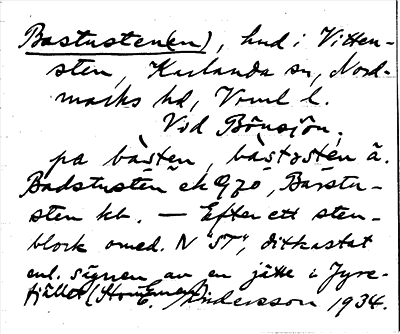 Bastusten(en), hud i Vitten-
sten, Karlanda sn, Nord-
marks hd, Vrml l.
Vid Bönsjön.
på bàsten, bàstəsten ä.
Badstusten ek 970, Bastu-
sten kb. — Efter ett sten-
block omed. N "ST", ditkastat
enl. sägnen av en jätte i Fyre-
fjället (Hommen
E. Andersson 1934.